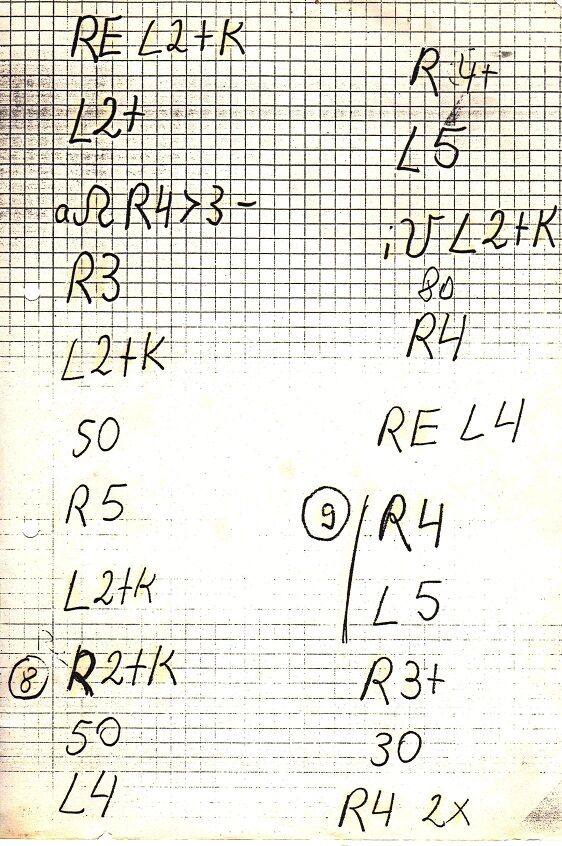 RE L2+K
L2+
aΩ R4>3-
R3
L2+K
50
R5
L2+K
⑧ R2+K
50
L4
R 4+
L5
iU L2+K
80
R4
RE L4
⑨ R4
L5
R3+
30
R4 2x